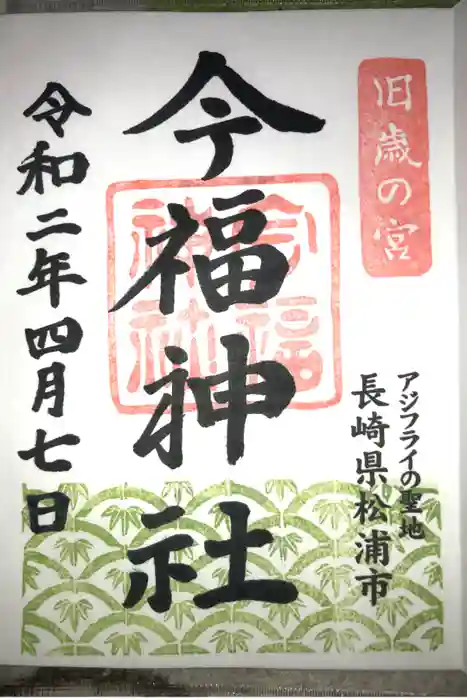 旧歳の宮
アジフライの聖地
長崎県松浦市
今福神社
今福
神社
令和二年四月七日